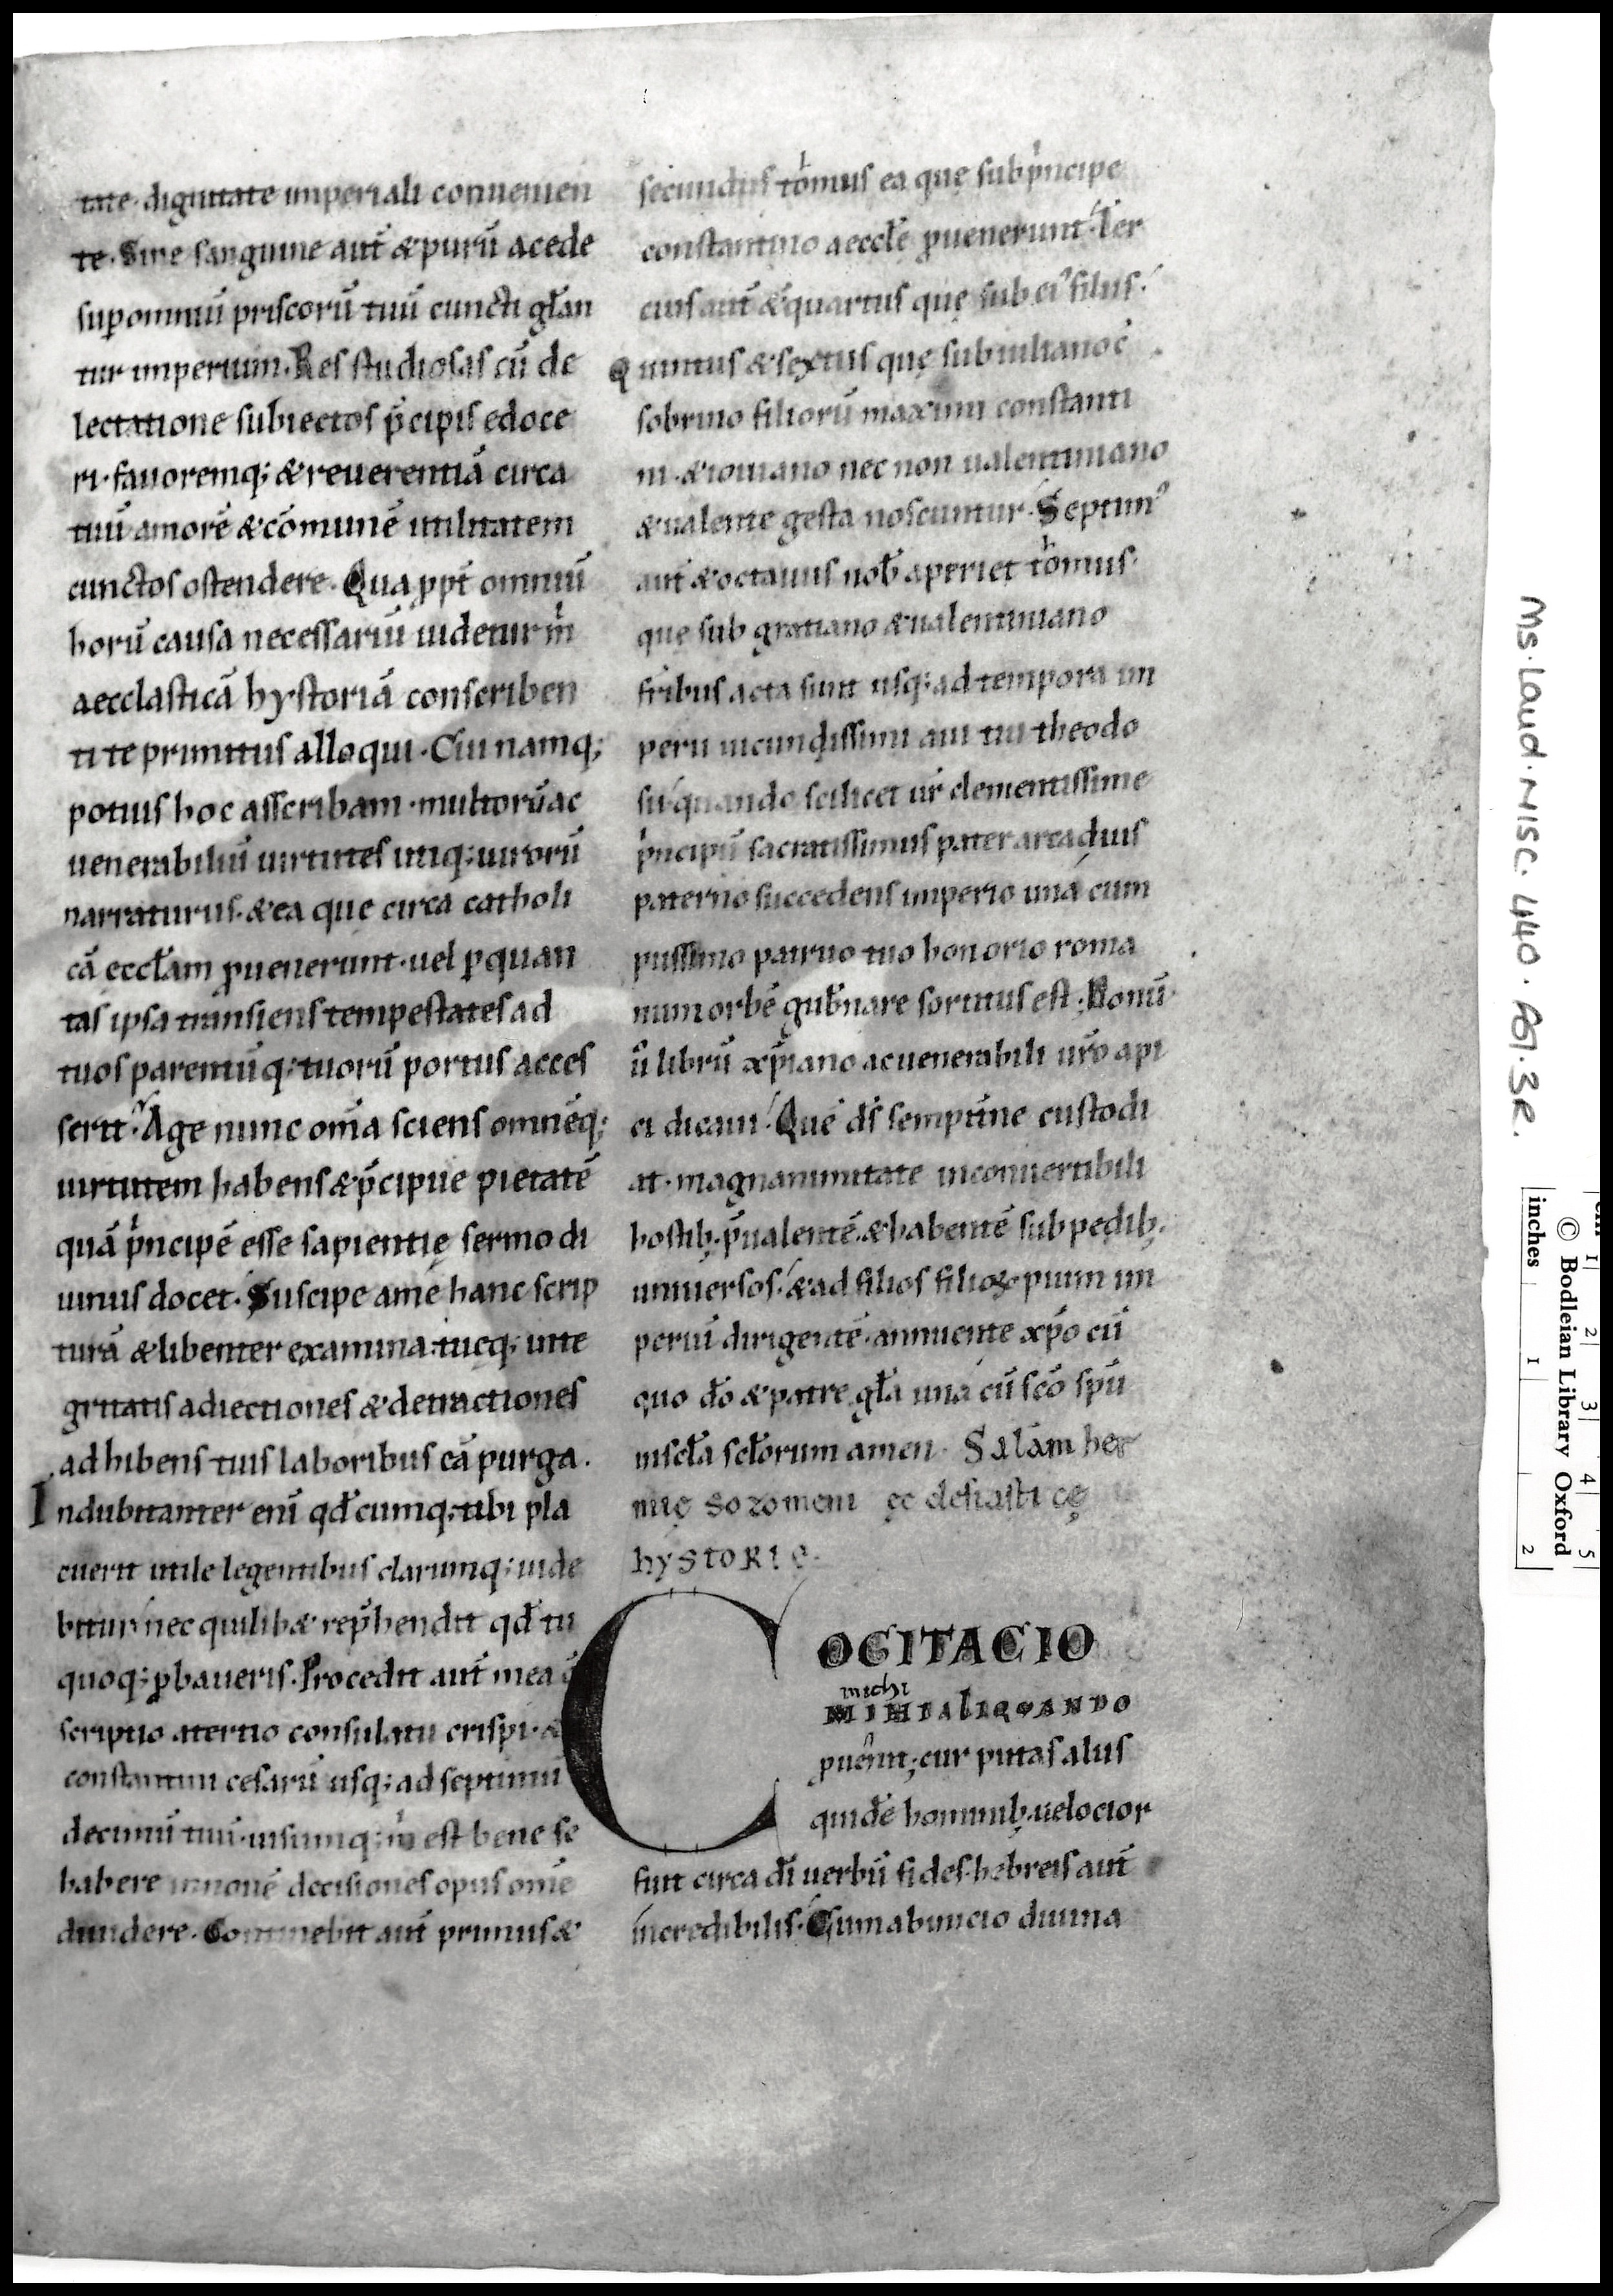 tate· dignitate imperiali conuenien
te· Sine sanguine aut̄ & purū a cede
sup̱ omniū priscorū tuū cuncti gl̄an
tur imperium. Res studiosas cū de
lectatione subiectos p̄cipis edoce
ri· fauoremq; & reuerentiā circa
tuū amorē & cōmunē utilitatem
cunctos ostendere. Qua ꝓpt̄ omniū
horū causa necessariū uidetur m̍
aecclasticā hystoriā conscriben
ti te primitus alloqui. Cui namq;
potius hoc asscribam· multorū ac
uenerabiliū uirtutes utiq; uirorū
narraturus· & ea que circa catholi
cā eccl̄am ꝓuenerunt· uel ꝑ quan
tas ipsa transiens tempestates ad
tuos parentūq; tuorū portus acces
serit· Age nunc om̄ia sciens omnēq;
uirtutem habens & p̄cipue pietatē
quā pͥncipē esse sapientię sermo di
uinus docet. Suscipe a me hanc scrip
turā & libenter examina· tueq; inte
gritatis adiectiones & detractiones
adhibens tuis laboribus eā purga.
Indubitanter eni̅ qd̄cumq; tibi pla
cuerit utile legentibus clarumq; uide
bitur· nec quilib& rep̄hendit qd̄ tu
quoq; ꝓbaueris. Procedit aut̄ mea
scriptio a tertio consulatu crispi· &
constantini cesarū usq; ad septimū
decimū tuū· uisumq; m̍ est bene se
habere in nouē decisiones opus om̄e
diuidere. Continebit aut̄ primus &
secundus tomus ea quę sub pͥncipe
constantino aeccl̄e ꝓuenerunt· Ter
cius aut̄ & quartus quę sub eiꝰ filiis·
Quintus & sextus quę sub iuliano c̄
sobrino filiorū maximi constanti
ni· & iouiano nec non ualentiniano
& ualente gesta noscuntur. Septimꝰ
aut̄ & octauus nob̄ aperiet tomus·
que sub gratiano & ualentiniano
fr̄ibus acta sunt usq; ad tempora im
perii iucundissimi aui tui theodo
sii· quando scilicet ur̄ clementissime
pͥncipū sacratissimus pater arcadius
paterno succedens imperio una cum
piissimo patruo tuo honorio roma
num orbē gub̄nare sortitus est. Nonū
ū librū xp̄iano ac uenerabili ur̄o api
ci dicaui· Quē ds̄ sempit̄ne custodi
at· magnanimitate inconuertibili
hostib; p̄ualentē· & habentē sub pedib;
uniuersos· & ad filios filioꝝ pium im
periū dirigentē· annuente xp̄o cū
quo dō & patre gl̄a una cū scō spū
in sc̄l̄a sc̄l̄orum amen. Salam her
mię sozomeni ęcclesiasticę
hystorię.
COGITACIO
michi
MIHI ALIQUANDO
puenit; cur putas aliis
quidē hominib; uelocior
fuit circa d̄i uerbū fides· hebreis aut̄
incredibilis. Cum ab inicio diuina
Ms. Laud. Misc. 440. fol. 3R.
© Bodleian Library Oxford
cm 1 2 3 4 5
inches 1 2